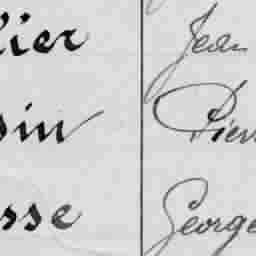 lier Jean
sin Pierr
sse George